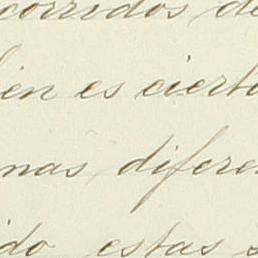 corridos de
ien es cierto
nas diferen
ido estas s